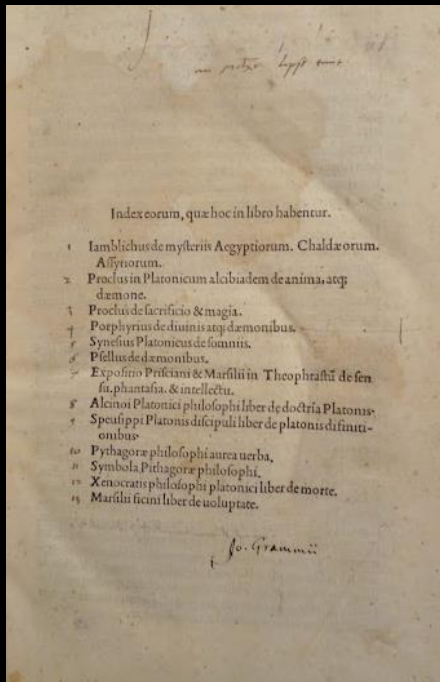 Index eorum, quæ hoc in libro habentur.
1 Iamblichus de mysteriis Aegyptiorum. Chaldæorum.
Assyriorum.
2 Proclus in Platonicum alcibiadem de anima, atq;
dæmone.
3 Proclus de sacrificio & magia.
4 Porphyrius de diuinis atq; dæmonibus.
5 Synesius Platonicus de somniis.
6 Psellus de dæmonibus.
7 Expositio Prisciani & Marsilii in Theophrastū de sen
su, phantasia, & intellectu.
8 Alcinoi Platonici philosophi liber de doctrīa Platonis.
9 Speusippi Platonis discipuli liber de platonis difiniti-
onibus.
10 Pythagoræ philosophi aurea uerba.
11 Symbola Pithagoræ philosophi.
12 Xenocratis philosophi platonici liber de morte.
13 Marsilii ficini liber de uoluptate.
Jo. Grammii